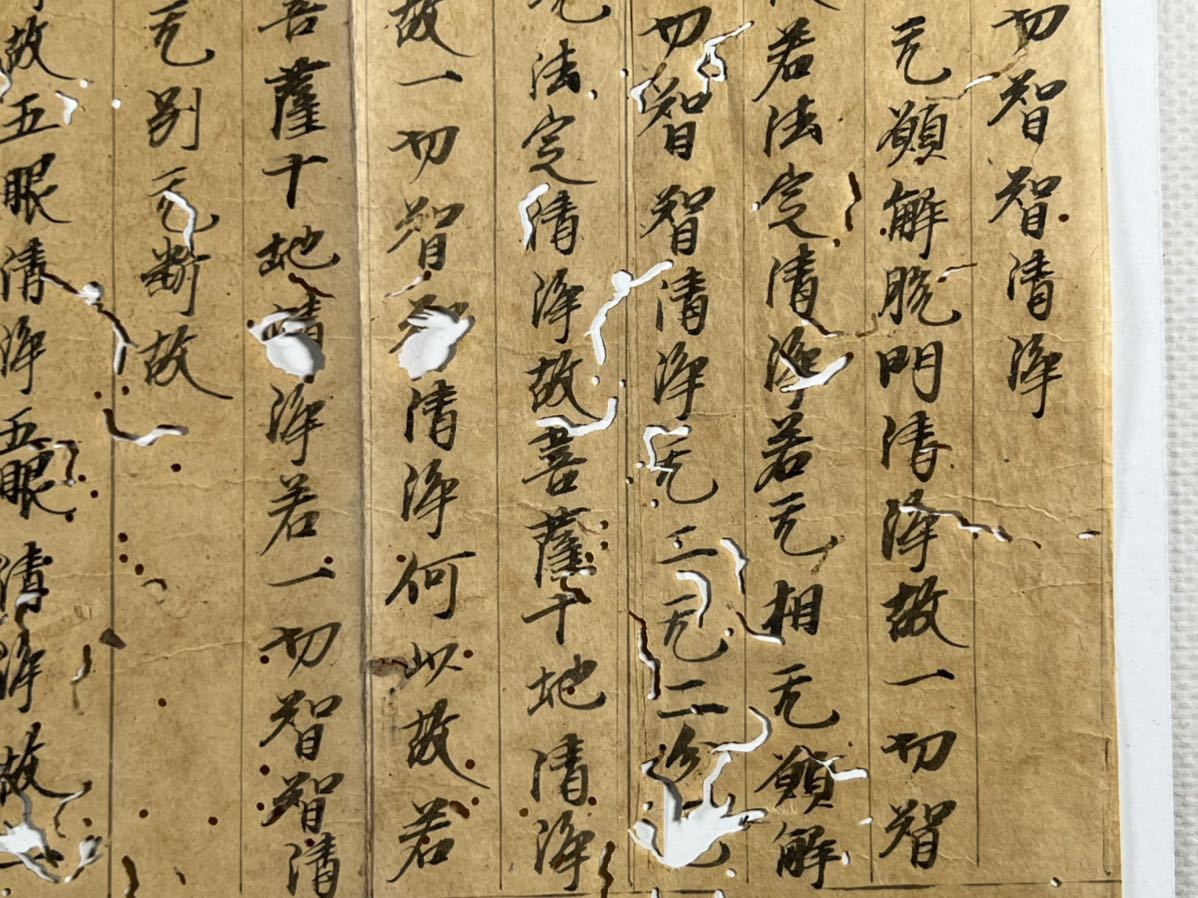 切智智清淨
无願解脫門清淨故一切智
若法定清淨若无相无願解
切智智清淨无二无二分无
法定清淨故菩薩十地清淨
故一切智智清淨何以故若
菩薩十地清淨若一切智智清
无別无斷故
故五眼清淨五眼清淨故一